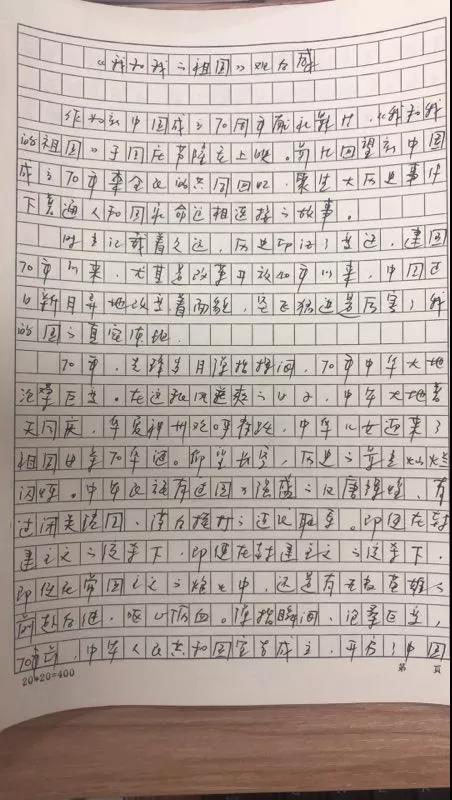 《我和我的祖国》观后感
作为新中国成立70周年献礼影片，《我和我
的祖国》于国庆节隆重上映。影片回望新中国
成立70年来全民的共同回忆，聚焦大历史事件
下普通人和国家命运相连接的故事。
时光记载着久远，历史印证了变迁，建国
70年以来，尤其是改革开放40年以来，中国正
日新月异地改变着面貌，
的国
70年，光阴岁月弹指挥间，70年中华大地
沧桑巨变。在这秋风送爽的日子，中华大地普
天同庆，华夏神州欢呼，中华儿女迎来了
祖国母亲70华诞。仰望长空，历史的
闪烁。中华民族有过国力强盛的汉唐辉煌，有
过闭关锁国，落后挨打的近代耻辱。即便在封
建主义的侵染下，即便在封建主义的侵染下，
即使在帝国主义的炮火中，还是有无数英雄人
前赴后继，呕心沥血。弹指瞬间，沧桑巨变，
70年前，中华人民共和国宣告成立，开启了中国
20*20=400 第 页